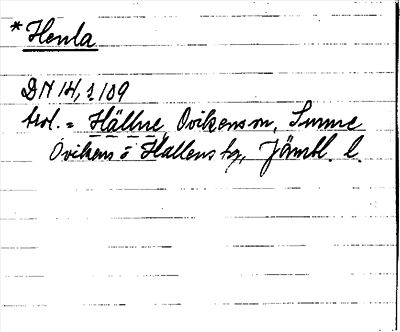 *Henla
DN 14,2 109
trol. = Hällne, Ovikens sn, Sunne
Ovikens o Hallens tg, Jämtl. l.